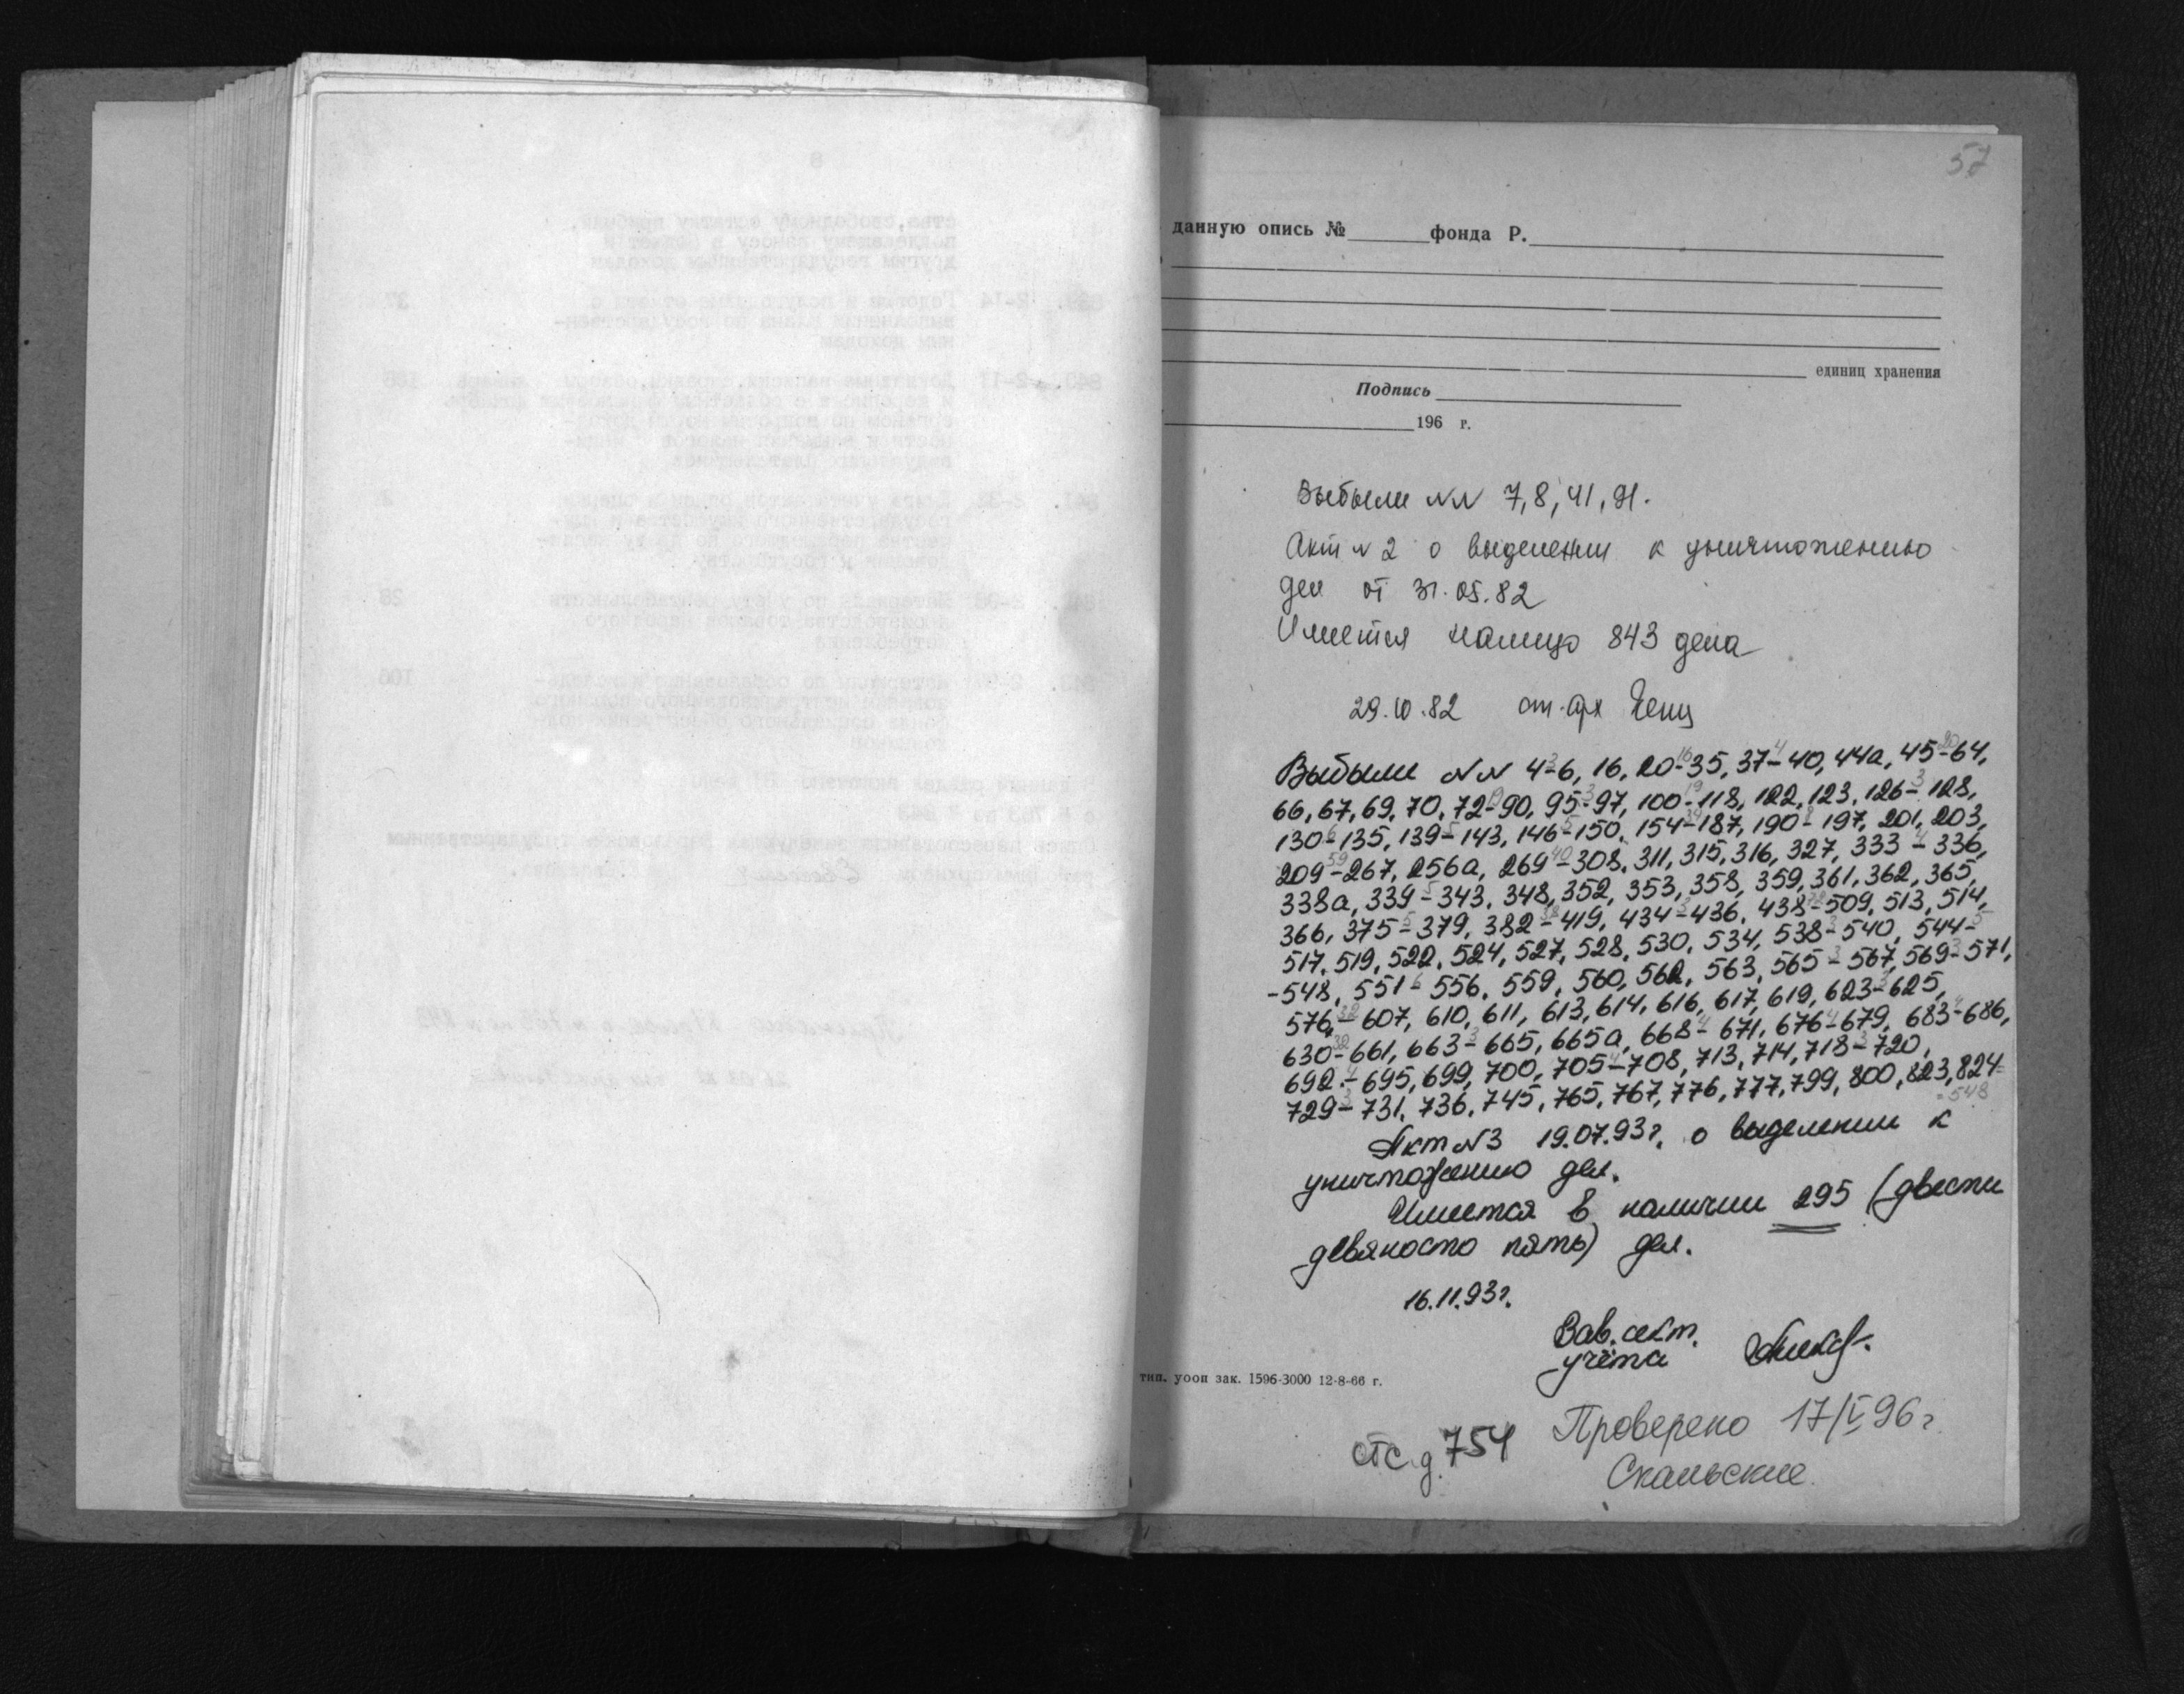 57
данную опись № фонда Р.
единиц хранения
Подпись
196 г.
Выбыли NN 7, 8, 41, 91.
Акт N 2 о выделении к уничтожению
дел от 31.05.82
Имеется налицо 843 дела
29.10.82 ст. арх
Выбыли NN 4-6, 16, 20-35, 37-40, 44а, 45-64,
66, 67, 69, 70, 72-90, 95-97, 100-118, 122, 123, 126-128,
130-135, 139-143, 146-150, 154-187, 190-197, 201, 203,
209-267, 256а, 269-308, 311, 315, 316, 327, 333-336,
338а, 339-343, 348, 352, 353, 358, 359, 361, 362, 365,
366, 375-379, 382-419, 434-436, 438-509, 513, 514,
517, 519, 522, 524, 527, 528, 530, 534, 538-540, 544-
-548, 551-556, 559, 560, 562, 563, 565-567, 569-571,
576-607, 610, 611, 613, 614, 616, 617, 619, 623-625,
630-661, 663-665, 665а, 668-671, 676-679, 683-686,
692-695, 699, 700, 705-708, 713, 714, 718-720,
729-731, 736, 745, 765, 767, 776, 777, 799, 800, 823, 824
=548
Акт N3 19.07.93г. о выделении к
уничтожению дел.
Имеется в наличии 295 (двести
девяносто пять) дел.
16.11.93г.
Зав. сект.
учёта
тип. уооп зак. 1596-3000 12-8-66 г.
Проверено 17/V 96 г.
отс. д. 754